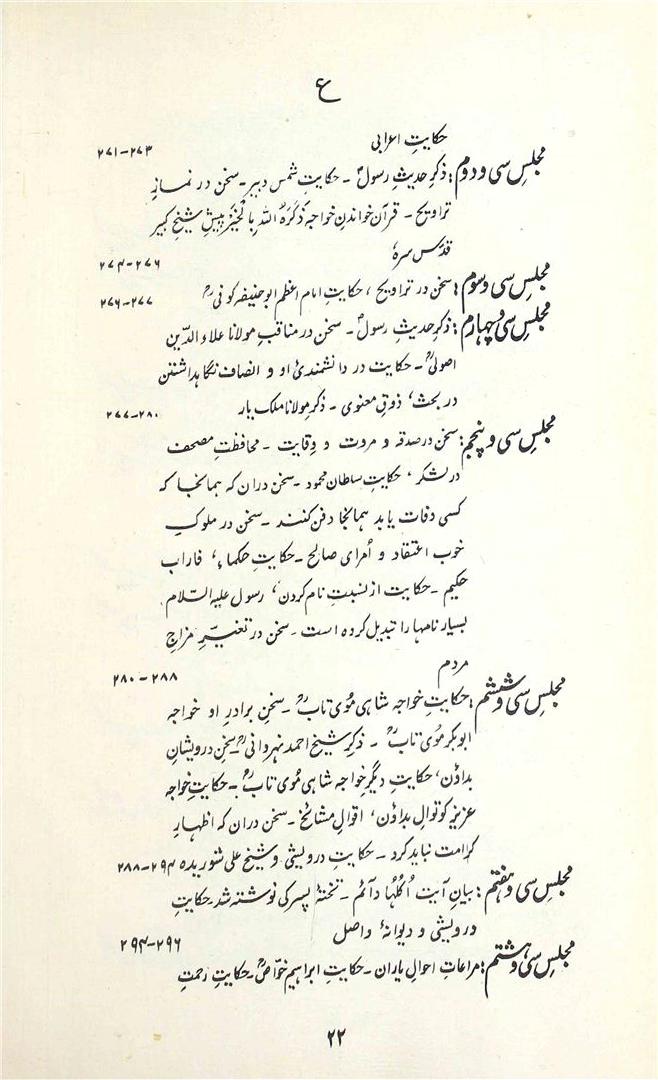 ع
حکایتِ اعرابی
۲۷۱-۲۷۳
مجلسِ سی و دوم: ذکرِ حدیثِ رسولؐ - حکایتِ شمس دبیر - سخن در نمازِ
تراویح - قرآن خواندنِ خواجہ ذَکَرَہُ اللہُ بِالْخَیْرِ پیشِ شیخِ کبیر
قدس سرہٗ
۲۷۴-۲۷۶
مجلسِ سی و سوم: سخن در تراویح، حکایتِ امام اعظم ابو حنیفہ کوفیؒ
۲۷۶-۲۷۷
مجلسِ سی و چہارم: ذکرِ حدیثِ رسولؐ - سخن در مناقبِ مولانا علاء الدّین
اصولیؒ - حکایت در دانشمندیٔ او و انصاف نگاہداشتن
در بحث، ذوقِ معنوی - ذکرِ مولانا ملک یار ۲۷۷-۲۸۰
مجلسِ سی و پنجم: سخن در صدقہ و مروت و وقایت - محافظتِ مصحف
در لشکر، حکایتِ سلطان محمود - سخن دران کہ ہمانجا کہ
کسی وفات یابد ہمانجا دفن کنند - سخن در ملوکِ
خوب اعتقاد و اُمرای صالح - حکایتِ حکماء، فاراب
حکیم - حکایت از نسبتِ نام کردن، رسول علیہ السّلام
بسیار نامہا را تبدیل کردہ است - سخن در تغیّرِ مزاجِ
مردم ۲۸۰-۲۸۸
مجلسِ سی و ششم: حکایتِ خواجہ شاہی مُوی تابؒ - سخنِ برادرِ او خواجہ
ابوبکر مُوی تابؒ - ذکرِ شیخ احمد نہروانیؒ - سخنِ درویشانِ
بداؤن، حکایتِ دیگرِ خواجہ شاہی مُوی تابؒ - حکایتِ خواجہ
عزیز کوتوالِ بداؤن، اقوالِ مشائخ - سخن دران کہ اظہارِ
کرامت نباید کرد - حکایتِ درویشی و شیخ علی شوریدہ ۲۸۸-۲۹۴
مجلسِ سی و ہفتم: بیانِ آیت اُکُلُہَا دَآئم - تختۂ پسر کی نوشتہ شد حکایتِ
درویشی و دیوانۂ واصل ۲۹۴-۲۹۶
مجلسِ سی و ہشتم: مراعاتِ احوالِ یاران - حکایتِ ابراہیم خوّاصؒ - حکایتِ رحمتِ
۲۲